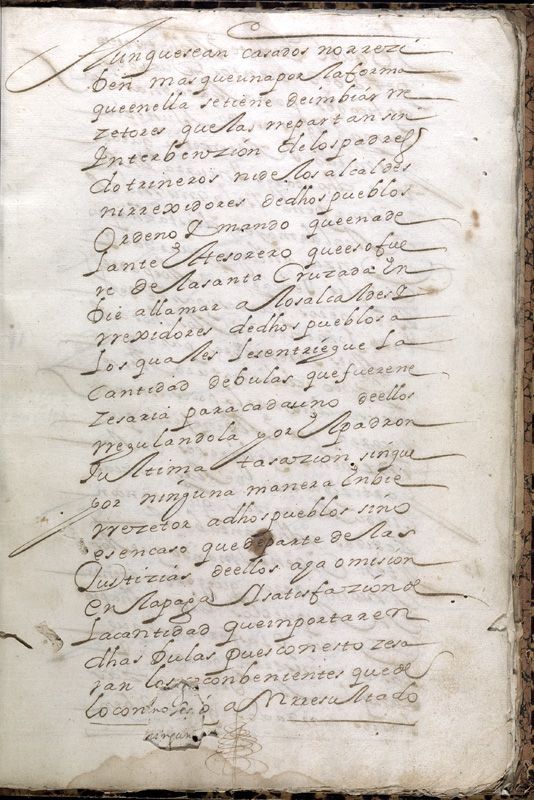 Aunquesean casados norrezi
ben mas que una por la forma
que en ella se tiene de imbiár rre
zetores que las rrepartan sin
Interbenzión de los padres
dotrineros ni de los alcaldes
ni rrexidores de dhos pueblos
Ordeno Y mando que en ade
lante El tesorero que es o fue
re de la santa Cruzada En
bie allamar a los alcaldes Y
rrexidores de dhos pueblos a
los quales les entriegue la
Cantidad de bulas que fuere ne
zesaria para cada uno de ellos
rregulandola por El padron
Y ultima tasazion sin que
por ninguna manera Enbie
rrezetor a dhos pueblos sino
es en caso que de parte de las
Justizias de ellos aga omisión
En la paga Y satisfazión de
la cantidad que inportaren
dhas bulas pues con esto zesa
ran los yconbenientes que de
lo con a rresultado